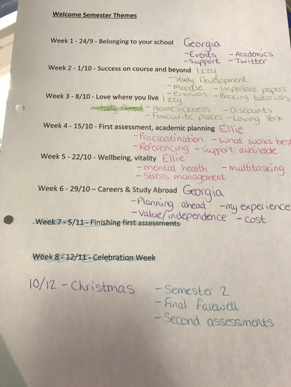 Welcome Semester Themes
Week 1 - 24/9 - Belonging to your school Georgia
- Events - Academics
- Support - Twitter
Week 2 - 1/10 - Success on course and beyond Izzy
- Study Development
- Moodle - Important papers
- Evision - Booking tutorials
Week 3 - 8/10 - Love where you live Izzy
- Homesickness - Discounts
- Favourite places - Loving York
Week 4 - 15/10 - First assessment, academic planning Ellie
- Procrastination - What works best
- Referencing - Support available
Week 5 - 22/10 - Wellbeing, vitality Ellie
- mental health - multitasking
- Stress management
Week 6 - 29/10 – Careers & Study Abroad Georgia
- Planning ahead - my experience
- Value/independence - cost
Week 7 - 5/11 - Finishing first assessments
Week 8 - 12/11 - Celebration Week
10/12 - Christmas - Semester 2
- Final farewell
- Second assessments